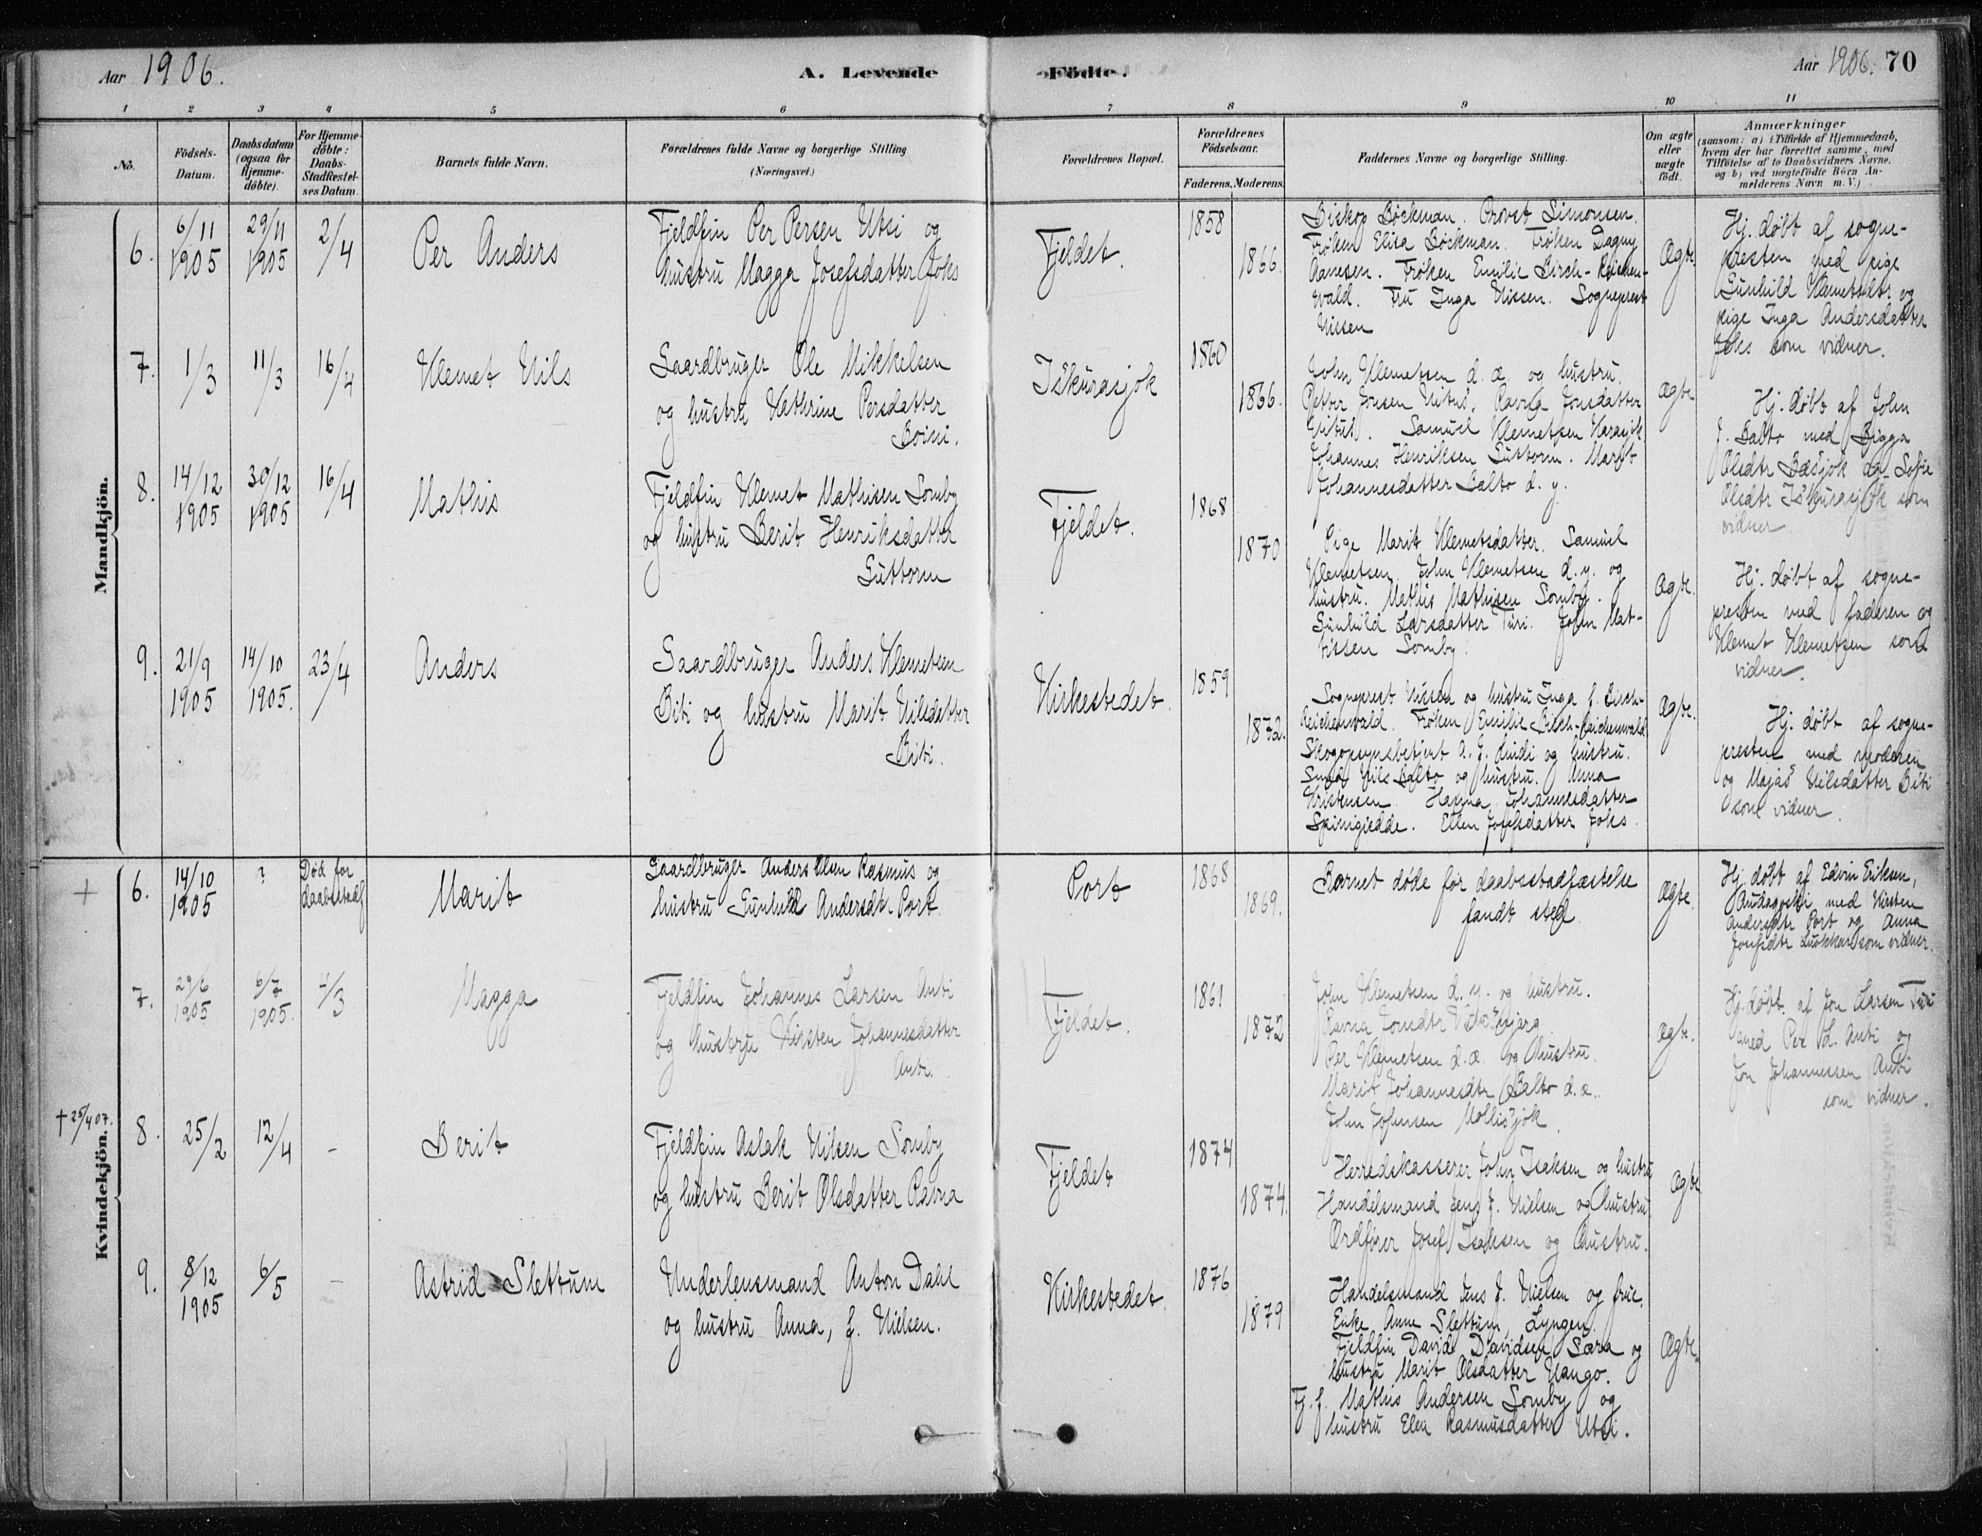 Aar 1906.
A. Levende Födte.
Aar 1906. 70
1 2 3 4 5 6 7 8 9 10 11
No.
Födsels-Datum.
Daabsdatum (ogsaa for hjemme-döbte).
For Hjemme-döbte: Daabs-Stadfæstelses Datum.
Barnets fulde Navn.
Forældrenes fulde Navne og borgerlige Stilling
(Næringsvei.)
Forældrenes Bopæl.
Forældrenes Födselsaar.
Faderens. Moderens.
Faddernes Navne og borgerlige Stilling.
Om ægte eller uægte födt.
Anmærkninger
(saasom: a) i Tilfælde af Hjemmedaab,
hvem der har forrettet samme, med
Tilföielse af to Daabsvidners Navne,
og b) ved uægtefödte Börn An-
melderens Navn m. V.)
Mandkjön.
6. 6/11 1905 29/11 1905 2/4 Per Anders
Fjeldfin Per Persen Utsi og
hustru Magga Josefsdatter Joks
Fjeldet. 1858 1866.
Biskop Böckman. Provst Simonsen.
Frøken Elisa Bøckman. Frøken Dagny
Aanesen. Frøken Emilie Birch-Reichen-
wald. Fru Inga Nissen. Sogneprest
Nissen
Ægte.
Hj. døbt af sogne-
presten med pige
Gunhild Klemetsdtr. og
pige Inga Andersdatter
Joks som vidner.
7. 1/3 11/3 16/4 Klemet Nils
Gaardbruger Ole Mikkelsen
og hustru Kathrine Persdatter
Boini.
Iskurasjok 1860 1866.
John Klemetsen d. æ. og hustru.
Petter Jonsen Nitus. Ravna Jonsdatter
Nitus. Samuel Klemetsen Karasjok
Johannes Henriksen Guttorm. Marit
Johannesdatter Balto d. y.
Ægte
Hj. døbt af John
J. Balto med Bigga
Olsdtr Bæsjok og Sofie
Olsdtr Iskurasjok som
vidner
8. 14/12 1905 30/12 1905 16/4 Mathis
Fjeldfin Klemet Mathisen Somby
og hustru Berit Henriksdatter
Guttorm
Fjeldet. 1868 1870
Pige Marit Klemetsdatter. Samuel
Klemetsen. John Klemetsen d. y. og
hustru. Mathis Mathisen Somby.
Gunhild Larsdatter Turi. John Mat-
tissen Somby.
Ægte.
Hj. døbt af sogne-
presten med faderen og
Klemet Klemetsen som
vidner.
9. 21/9 1905 14/10 1905. 23/4 Anders
Gaardbruger Anders Klemetsen
Biti og hustru Marit Nilsdatter
Biti.
Kirkestedet. 1859 1872.
Sogneprest Nissen og hustru Inga f. Birch-
Reichenwald. Frøken Emilie Birch-Reichenwald
Skogopsynsbetjent A. J. Lindi og hustru.
Smed Nils Balto og hustru. Anna
Kristensen. Hanna Johannesdatter
Spinigiedde. Ellen Josefsdatter Joks.
Ægte.
Hj. døbt af sogne-
presten med moderen
og Maja Nilsdatter Biti
som vidner.
Kvindekjön.
+ 6. 14/10 1905 ? Død før daabsstadf. Marit
Gaardbruger Anders Olsen Rasmus og
hustru Gunhild Andersdt. Port.
Port 1868 1869.
Barnet døde før daabsstadfæstelse
fandt sted.
Ægte.
Hj. døbt af Edvin Eriksen,
med Kirsten
Andersdtr Port og Anna
som vidner.
7. 29/6 1905 6/7 1905. 4/3 Magga
Fjeldfin Johannes Larsen Anti
og hustru Kirsten Johannesdatter
Anti.
Fjeldet. 1861 1872
John Klemetsen d. y. og hustru.
Ravna Jonsdtr
Per Klemetsen d. æ. og hustru.
Marit Johannesdtr Balto d. æ.
John Johnsen Mollisjok.
Ægte.
Hj. døbt af Jon Larsen Turi
med Per L. Anti og
Jon Johannessen Anti
som vidner.
+ 25/4 07. 8. 25/2 12/4 - Berit
Fjeldfin Aslak Nilsen Somby
og hustru Berit Olsdatter Ravna
Fjeldet 1874 1874.
Herredskasserer John Isaksen og hustru
Handelsmand Jens J. Nielsen og hustru
Ordfører Josef Isaksen og hustru.
Ægte
9. 8/12 1905 6/5 - Astrid Slettum
Underlensmand Anton Dahl
og hustru Anna, f. Nielsen.
Kirkestedet. 1876 1879
Handelsmand Jens J. Nielsen og frue.
Enke Anne Slettum, Lyngen.
Fjeldfin David Davidsen Sara og
hustru Marit Olsdatter Nango.
Fj. f. Mathis Andersen Somby og
hustru Elen Rasmusdatter Utsi.
Ægte.